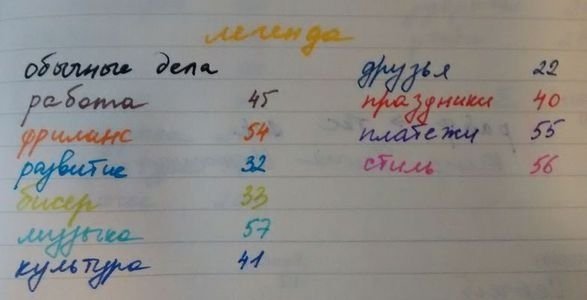 легенда
обычные дела
работа 45
фриланс 54
развитие 32
бисер 33
музыка 57
культура 41
друзья 22
праздники 40
платежи 55
стиль 56